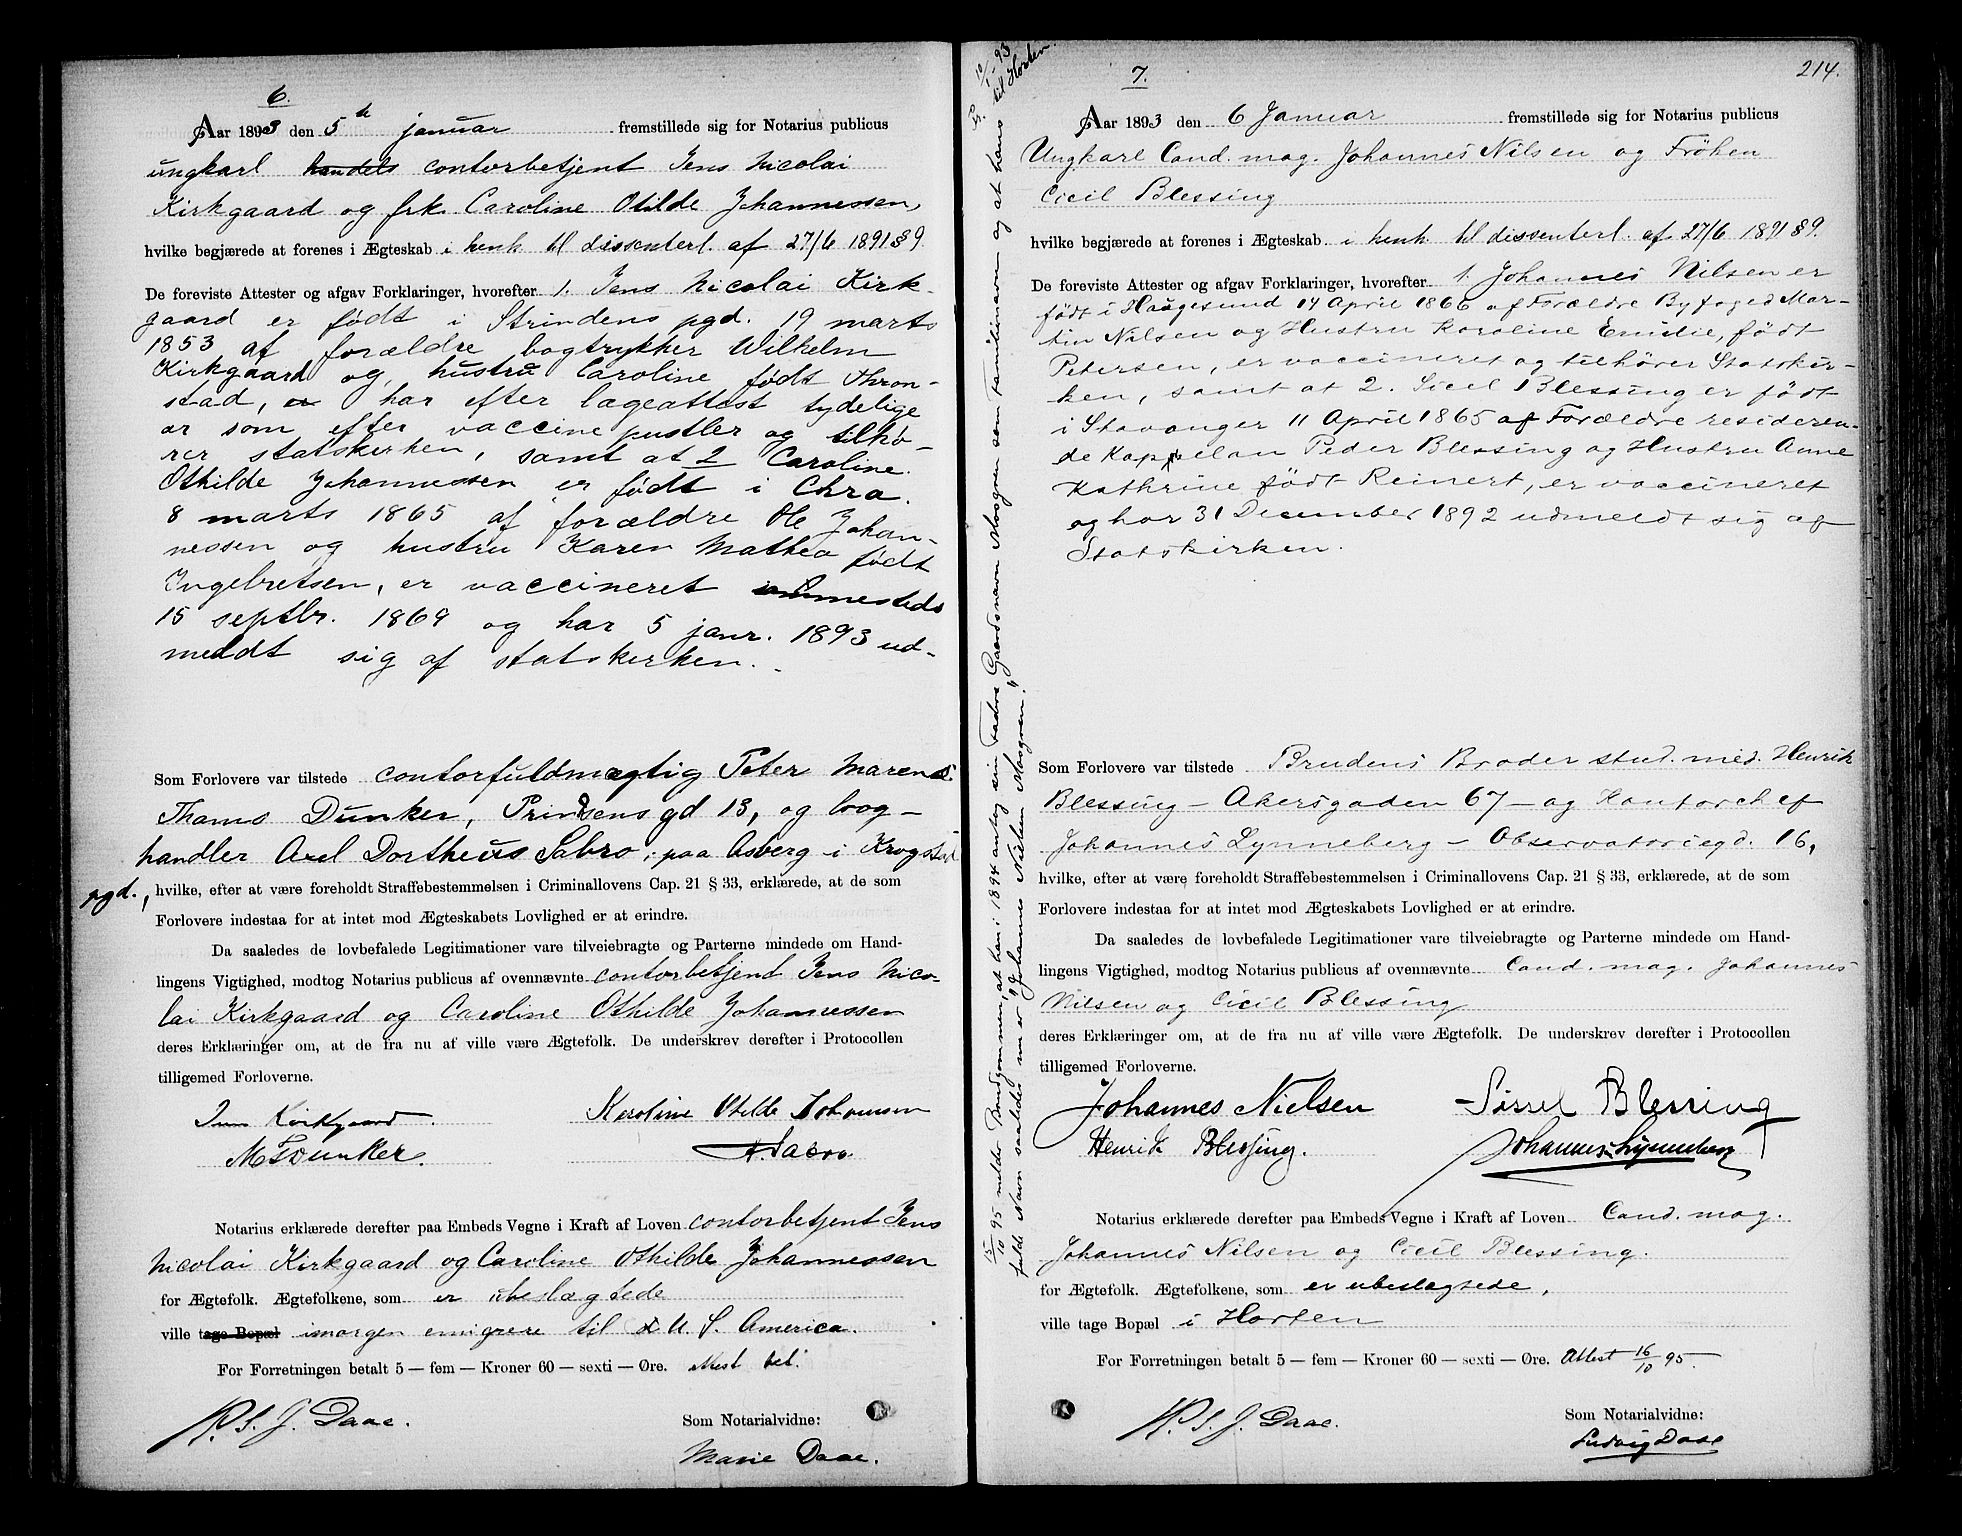 6.
Aar 1893 den 5te januar fremstillede sig for Notarius publicus
ungkarl handels contorbetjent Jens Nicolai
Kirkgaard og frk. Caroline Otilde Johannessen,
hvilke begjærede at forenes i Ægteskab i henh. til dissenterl. af 27/6 1891 § 9.
De foreviste Attester og afgav Forklaringer, hvorefter 1. Jens Nicolai Kirk-
gaard er født i Strindens pgd. 19 marts
1853 af forældre bogtrykker Wilhelm
Kirkgaard og hustru Caroline født Thron-
stad, har efter lægeattest tydelige
ar som efter vaccinepustler og tilhø-
rer statskirken, samt at 2 Caroline
Othilde Johannessen er født i Chra.
8 marts 1865 af forældre Ole Johan-
nessen og hustru Karen Mathea født
Ingebretsen, er vaccineret
15 septbr. 1869 og har 5 janr. 1893 ud-
meldt sig af statskirken.
Som Forlovere var tilstede contorfuldmægtig Peter Marens
Thams Dunker, Prindsens gd 13, og bog-
handler Axel Dortheus Sabro, paa Asberg i Krogstad
pgd.,
hvilke, efter at være foreholdt Straffebestemmelsen i Criminallovens Cap. 21 § 33, erklærede, at de som
Forlovere indestaa for at intet mod Ægteskabets Lovlighed er at erindre.
Da saaledes de lovbefalede Legitimationer vare tilveiebragte og Parterne mindede om Hand-
lingens Vigtighed, modtog Notarius publicus af ovennævnte contorbetjent Jens Nico-
lai Kirkgaard og Caroline Othilde Johannessen
deres Erklæringer om, at de fra nu af ville være Ægtefolk. De underskrev derefter i Protocollen
tilligemed Forloverne.
Jens Kirkgaard. Karoline Otilde Johannsen
Dunker. A. Sabro.
Notarius erklærede derefter paa Embeds Vegne i Kraft af Loven contorbetjent Jens
Nicolai Kirkgaard og Caroline Othilde Johannessen
for Ægtefolk. Ægtefolkene, som er ubeslægtede
ville tage Bopæl imorgen emigrere til U. S. America.
For Forretningen betalt 5 — fem — Kroner 60 — sexti — Øre. Attest bet.
J. Daae.
Som Notarialvidne:
Marie Daae.
214.
10/1 - 93
til Horten.
7.
Aar 1893 den 6 Januar fremstillede sig for Notarius publicus
Ungkarl Cand. mag. Johannes Nilsen og Frøken
Cicil Blessing
hvilke begjærede at forenes i Ægteskab i henh. til dissenterl. af 27/6 1891 § 9.
De foreviste Attester og afgav Forklaringer, hvorefter 1. Johannes Nilsen er
født i Haugesund 14 April 1866 af Forældre Byfoged Mar-
tin Nilsen og Hustru Karoline Emilie, født
Petersen, er vaccineret og tilhører Statskir-
ken, samt at 2. Sicil Blessing er født
i Stavanger 11 April 1865 af Forældre resideren-
de Kappelan Peder Blessing og Hustru Anne
Kathrine født Reinert, er vaccineret
og har 31 December 1892 udmeldt sig af
Statskirken.
Som Forlovere var tilstede Brudens Broder stud. med. Henrik
Blessing - Akersgaden 67 - og Kontorchef
Johannes Lynneberg - Observatoriegd. 16,
hvilke, efter at være foreholdt Straffebestemmelsen i Criminallovens Cap. 21 § 33, erklærede, at de som
Forlovere indestaa for at intet mod Ægteskabets Lovlighed er at erindre.
Da saaledes de lovbefalede Legitimationer vare tilveiebragte og Parterne mindede om Hand-
lingens Vigtighed, modtog Notarius publicus af ovennævnte Cand. mag. Johannes
Nilsen og Cicil Blessing
deres Erklæringer om, at de fra nu af ville være Ægtefolk. De underskrev derefter i Protocollen
tilligemed Forloverne.
Johannes Nielsen Sissel Blessing
Henrik Blessing. Johannes Lynneberg
Notarius erklærede derefter paa Embeds Vegne i Kraft af Loven Cand. mag.
Johannes Nilsen og Cicil Blessing.
for Ægtefolk. Ægtefolkene, som er ubeslægtede,
ville tage Bopæl i Horten
For Forretningen betalt 5 — fem — Kroner 60 — sexti — Øre. Attest 16/10 95.
J. Daae.
Som Notarialvidne:
Ludvig Daae
15/10 95 melder Brudgommen, at han i 1894 antog sin Faders Gaardsnavn Mogren som Familienavn og at hans
fulde Navn saaledes nu er "Johannes Nielsen Mogren."